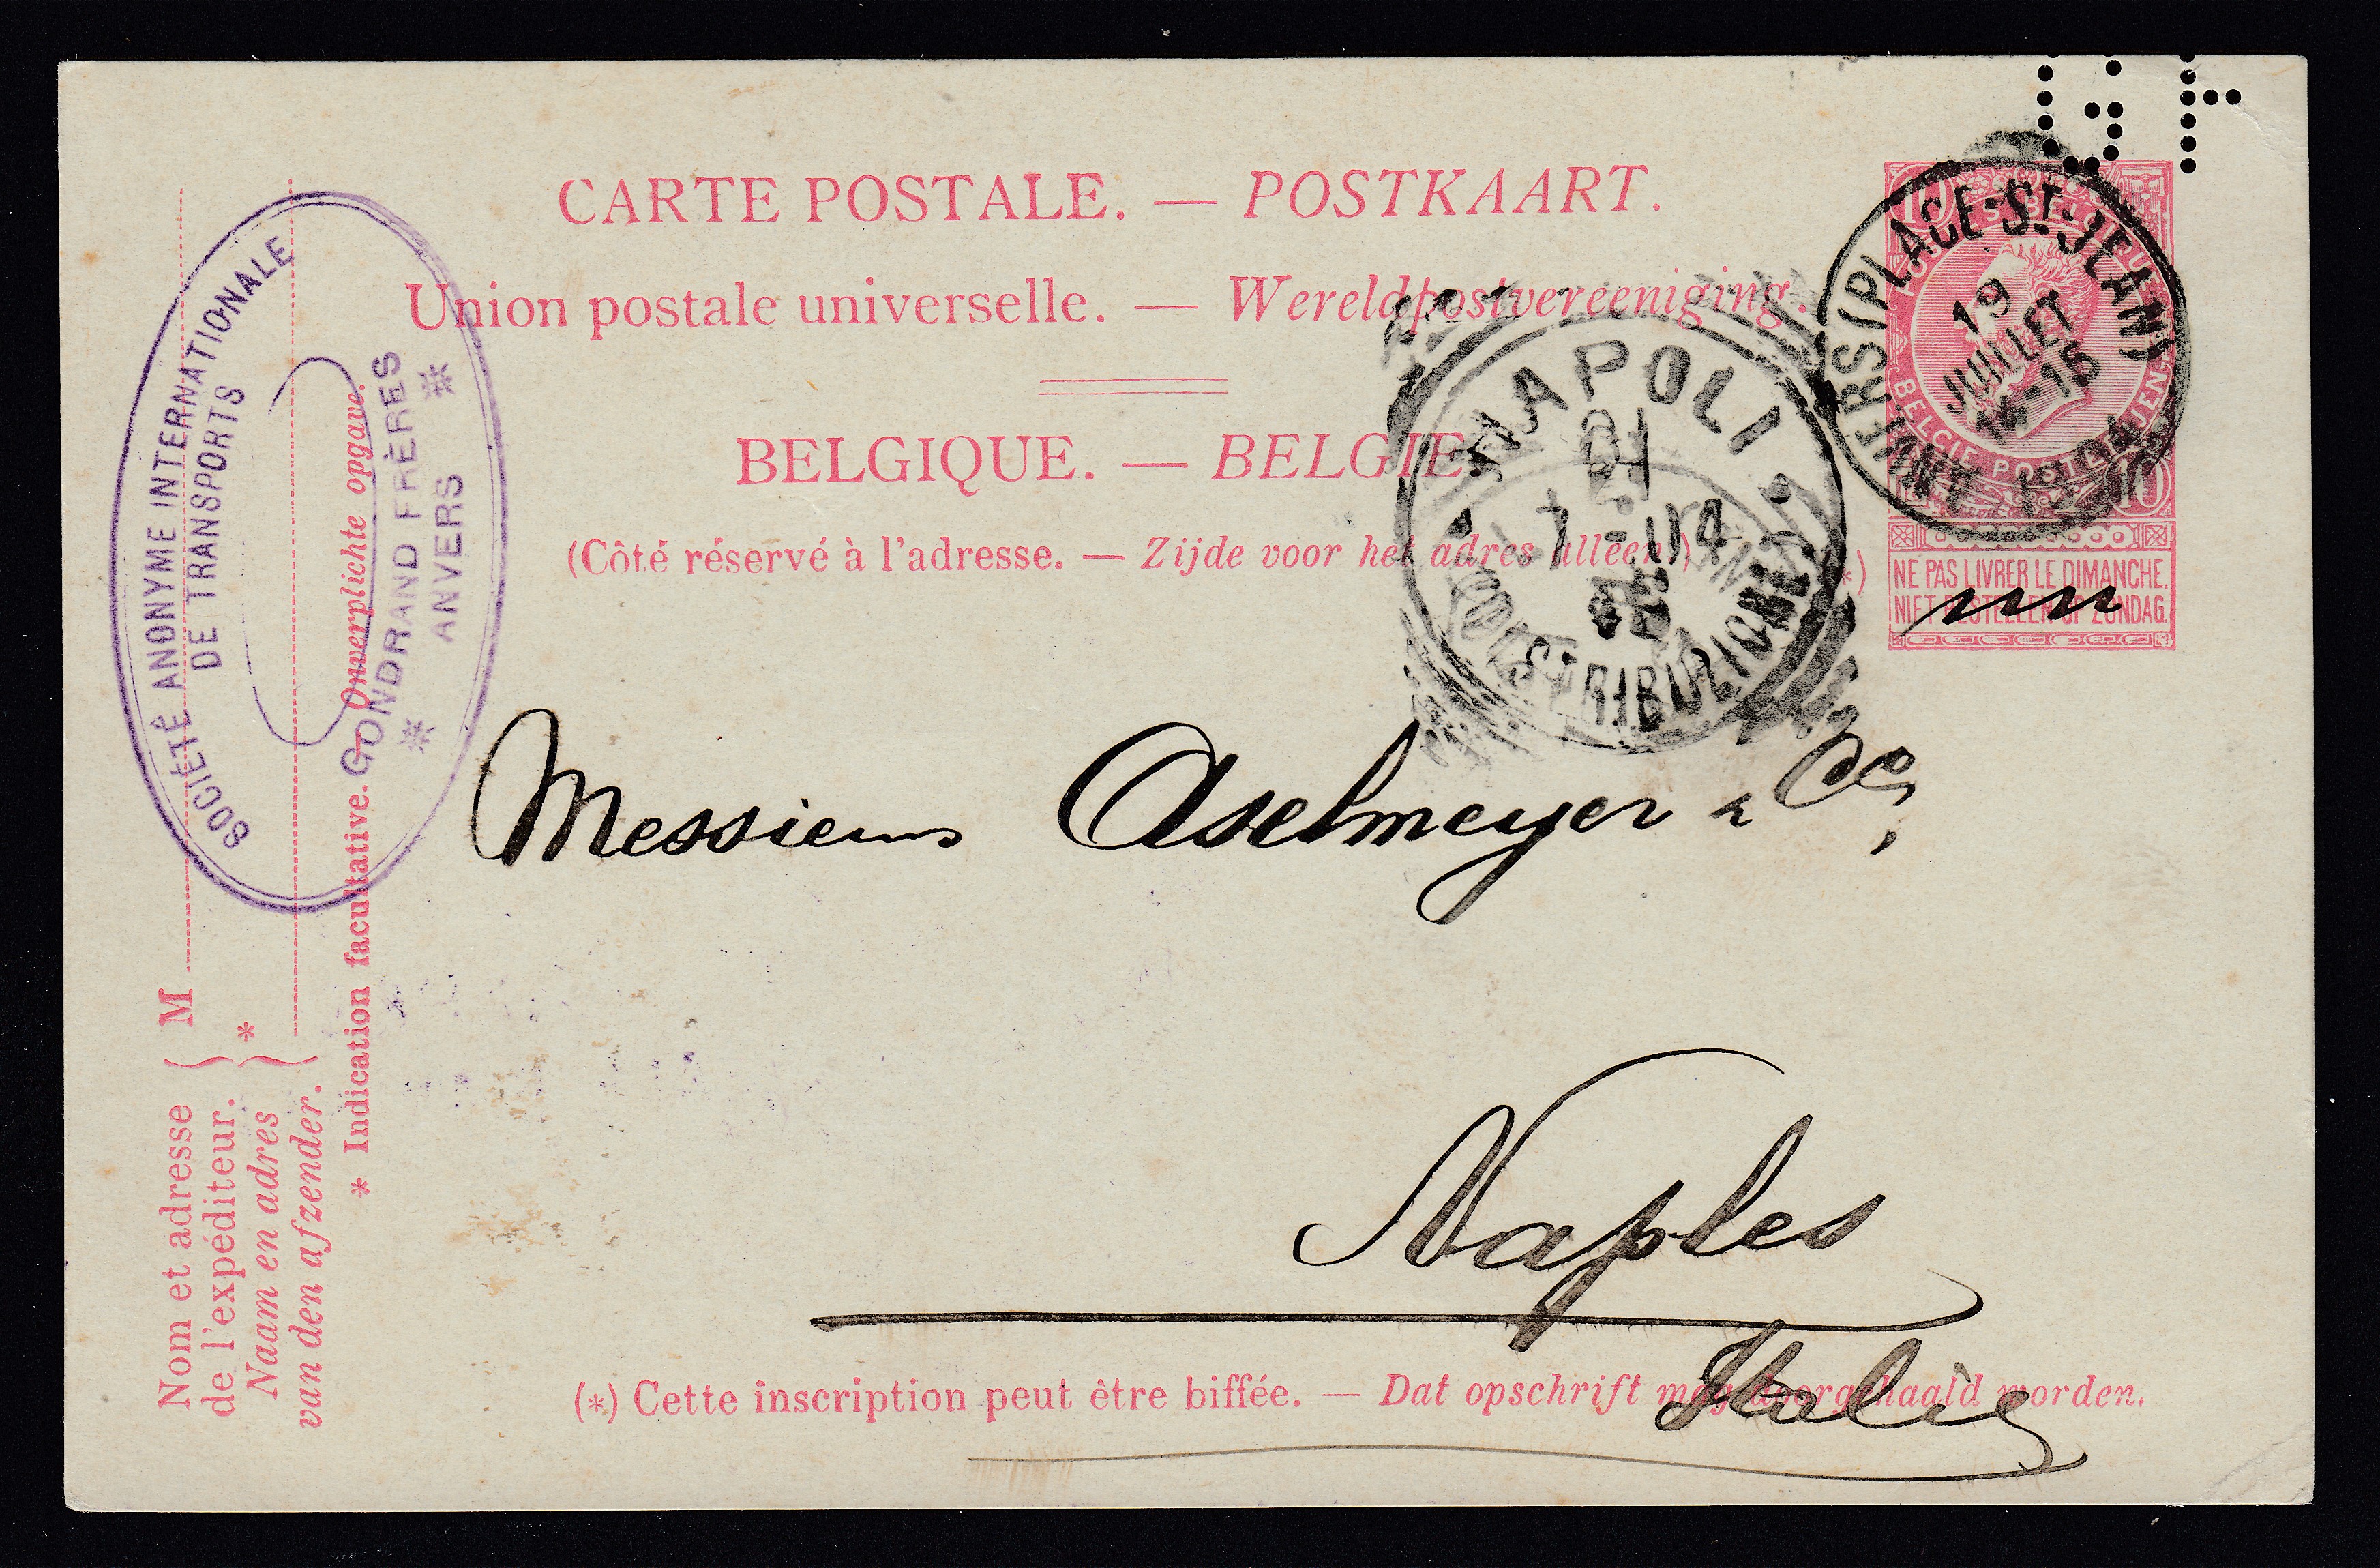 CARTE POSTALE. — POSTKAART.
Union postale universelle. — Wereldpostvereeniging.
BELGIQUE. — BELGIË
(Côté réservé à l'adresse. — Zijde voor het adres alleen.)
G F
ANVERS (PLACE-St-JEAN)
19
JUILLET
14-15
1904
10
BELGIE POSTERIJEN
10
(*)
NE PAS LIVRER LE DIMANCHE.
NIET BESTELLEN OP ZONDAG.
NAPOLI
21
7-04
DISTRIBUZIONE
SOCIÉTÉ ANONYME INTERNATIONALE
DE TRANSPORTS
GONDRAND FRÈRES
ANVERS
Messieurs Aselmeyer & Co,
Naples
Italie
Nom et adresse
de l'expéditeur.
Naam en adres
van den afzender.
M
*
* Indication facultative. — Onverplichte opgave.
(*) Cette inscription peut être biffée. — Dat opschrift mag doorgehaald worden.